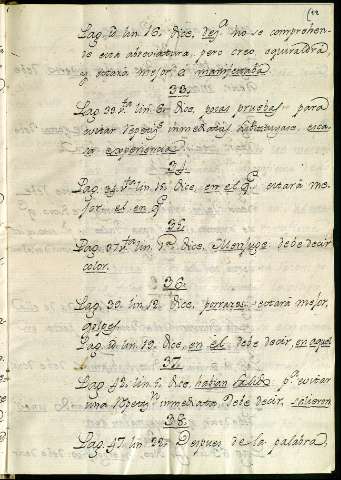 Pag. id. lin. 16. dice, dejª no se comprehen-
de esta abreviatura, pero creo equivaldra,
y estará mejor á manifestaba
33.
Pag. 33 vta lin. 6. dice, pocas pruebas para
evitar repetn inmediata substituyase, esca-
sa experiencia
34.
Pag. 34. vta lin. 15. dice, en el qe estará me-
jor, es en qe
35.
Pag. 37. vta lin. dice, Menjuge debe decir
color.
36.
Pag. 39. lin. 12. dice, porrazos estará mejor,
golpes.
Pag. id. lin. 19. dice, en el debe decir, en aquel
37.
Pag. 43. lin. 5. dice, habian salido pa evitar
una repetn inmediata debe decir, salieron
38.
Pag. 47. lin. 22. Despues de la palabra,